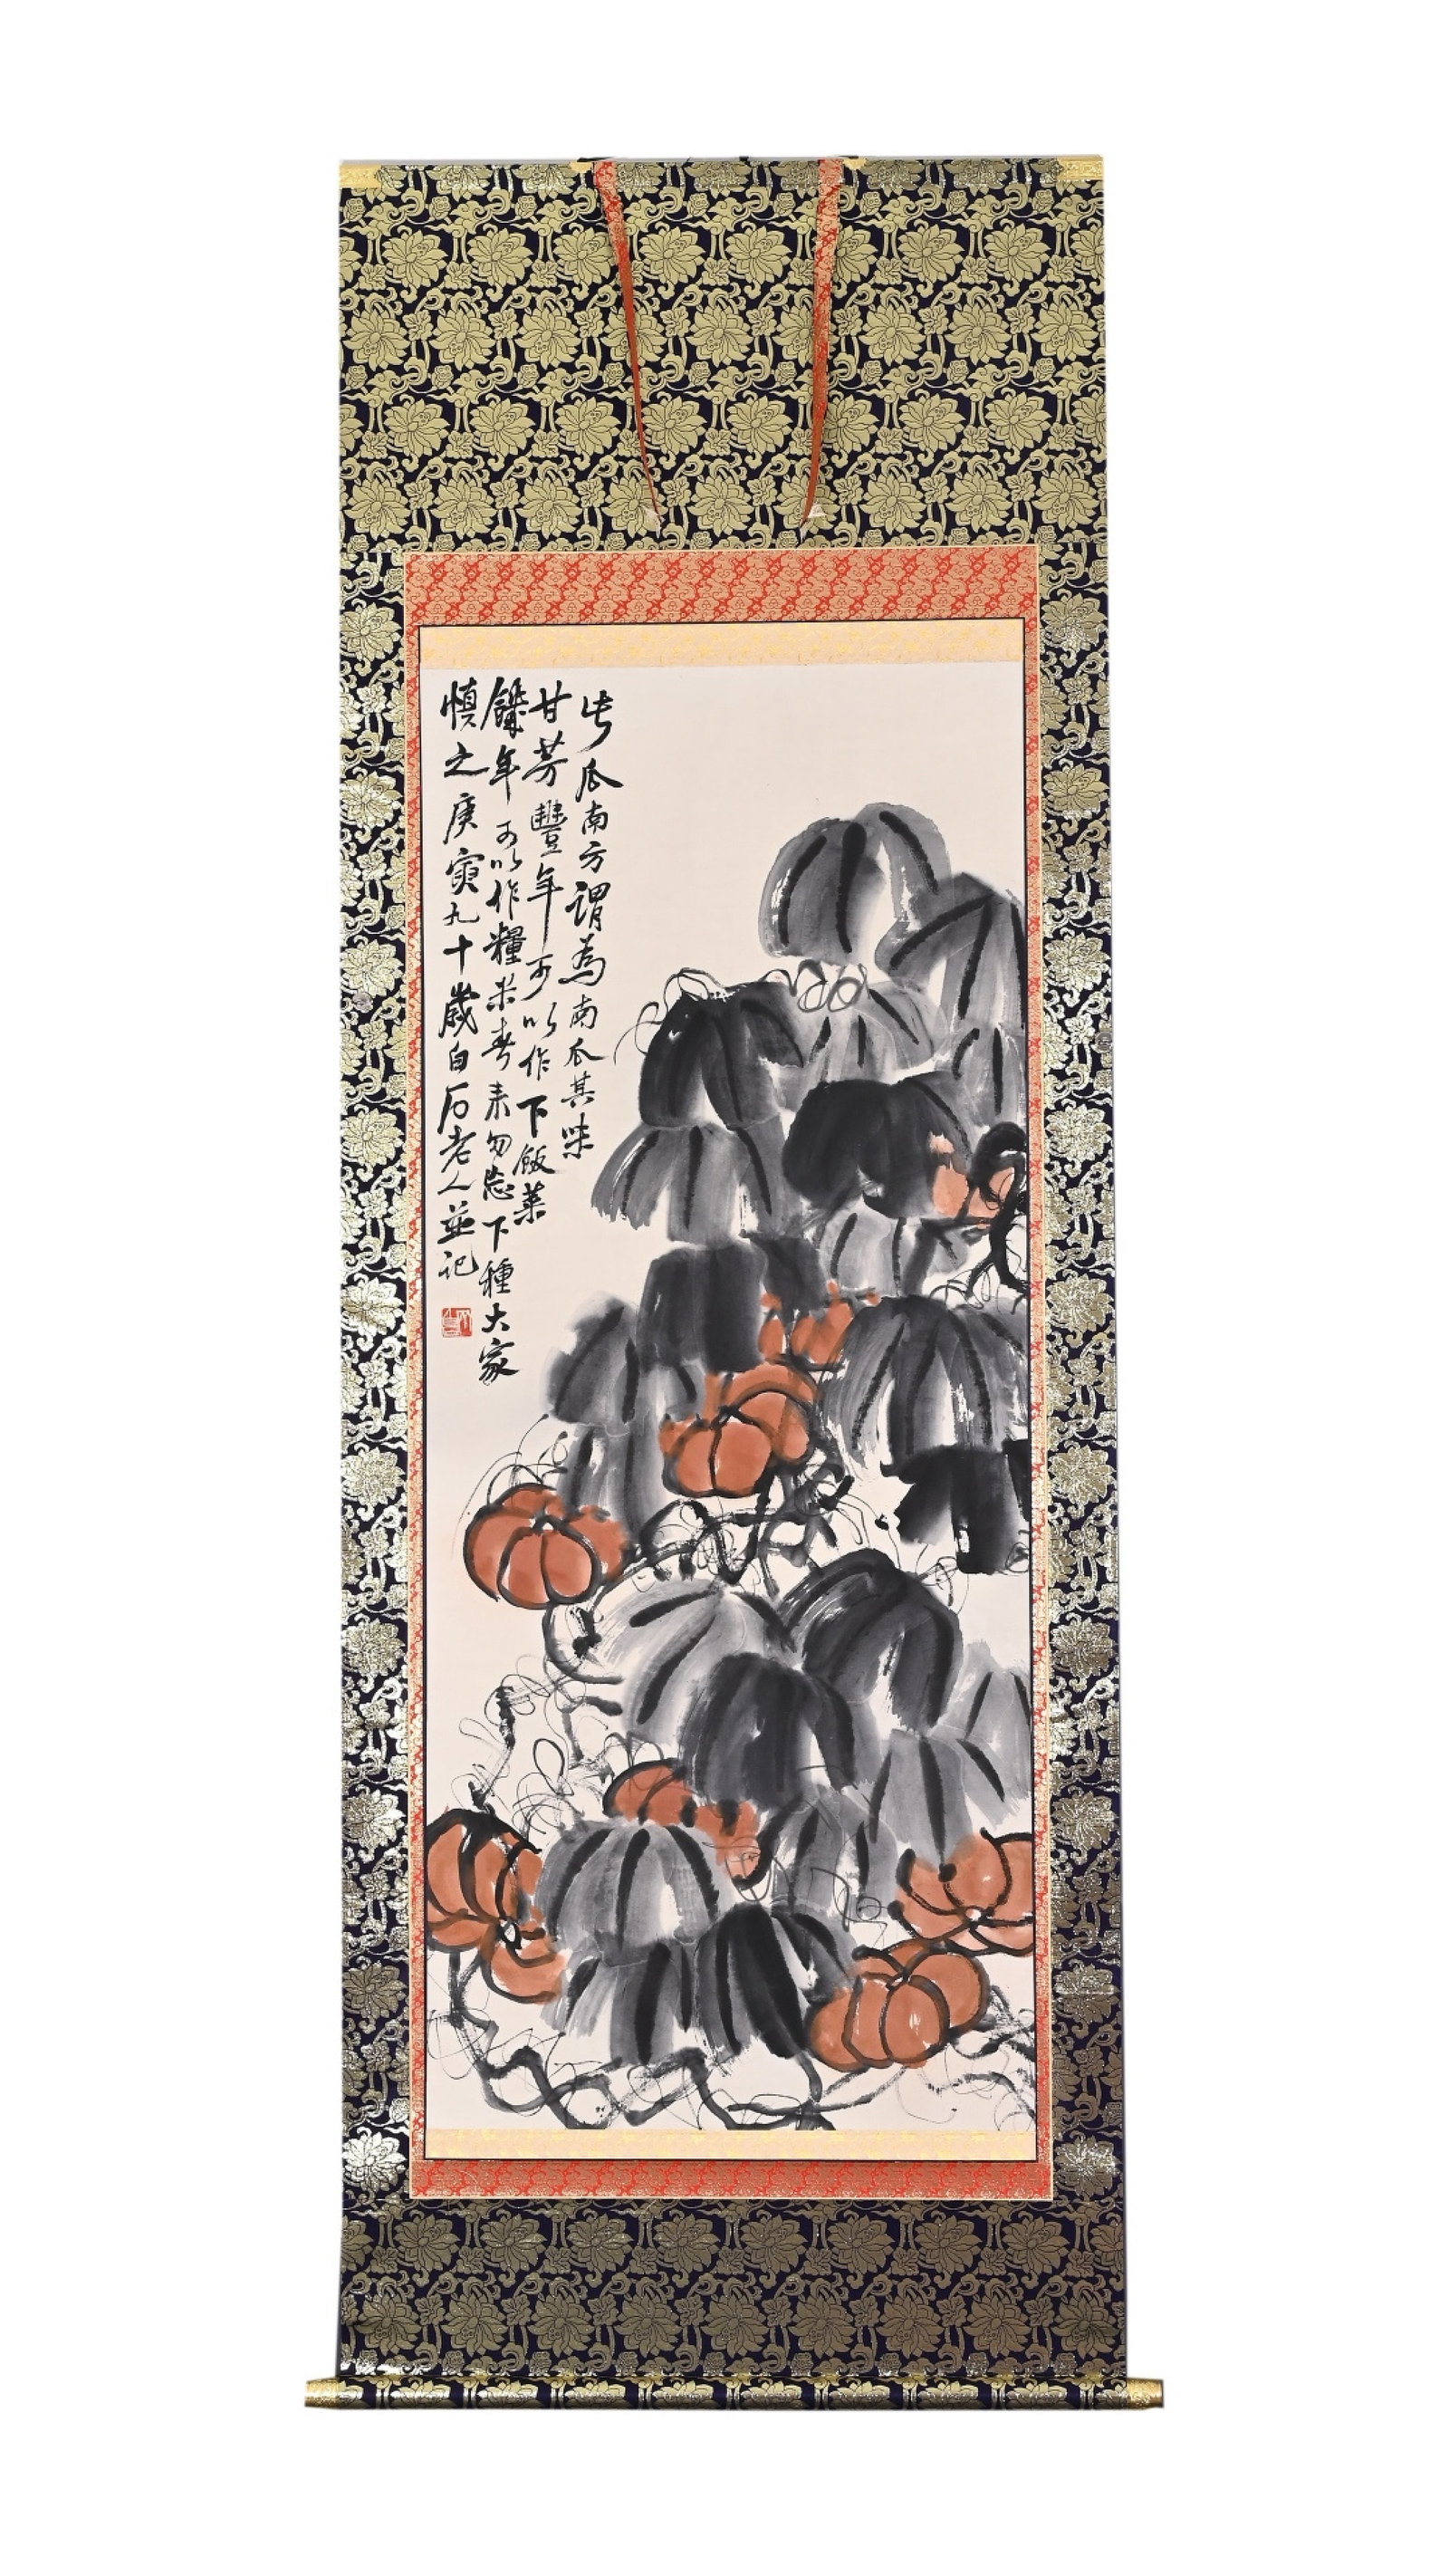 此瓜南方謂為南瓜其味
甘芳豐年可以作下飯菜
饑年可以作糧米春來勿忘下種大家
慎之庚寅九十歲白石老人並記